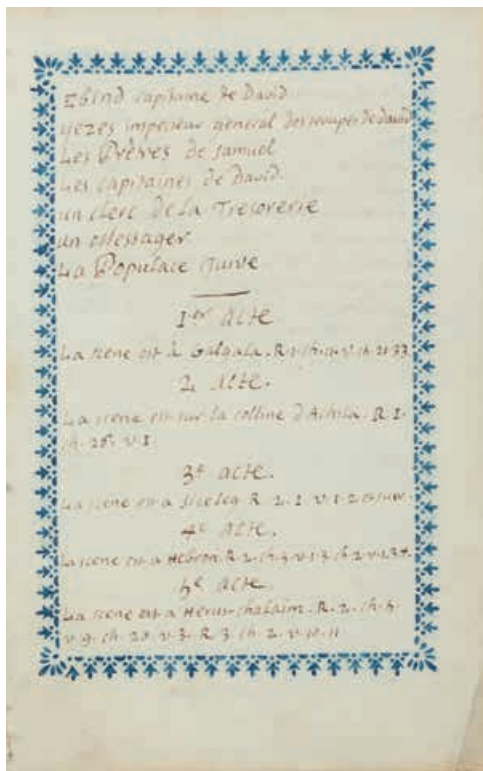 Ebind capitaine de David
yezes inspecteur general des troupes de david
Les Prêtres de Samuel
Les capitaines de David.
un clerc de la Tresorerie
un Messager
La Populace Juive
1er acte
La scene est à Galgala. R 1. ch. v. 33
2 acte.
La scene est sur la colline d'Achila. R 1.
ch. 26. v. 1
3e acte.
La scène est a Siceleg R. 2. 1. v. 1. 2
4e acte.
La scene est a Hebron R 2. ch.
5e acte
La scene est a Herus-chalaïm. R. 2. ch. 5.
v. 9. ch. 20. v. 3. R 3. ch. 2. v. 10. 11